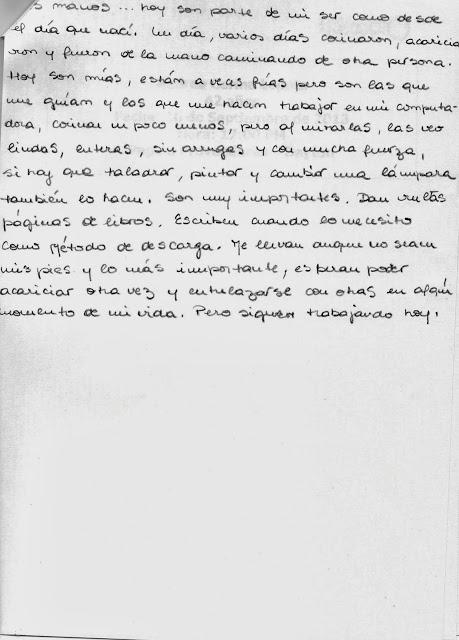 s manos... hoy son parte de mi ser como desde
el día que nací. Un día, varios días cocinaron, acaricia
ron y fueron de la mano caminando de otra persona.
Hoy son mías, están a veces frías pero son las que
me guían y las que me hacen trabajar en mi computa-
dora, cocinar un poco menos, pero al mirarlas, las veo
lindas, enteras, sin arrugas y con mucha fuerza,
si hay que taladrar, pintar y cambiar una lámpara
también lo hacen. Son muy importantes. Dan vueltas
páginas de libros. Escriben cuando lo necesito
como método de descarga. Me llevan aunque no sean
mis pies y lo más importante, esperan poder
acariciar otra vez y entrelazarse con otras en algún
momento de mi vida. Pero siguen trabajando hoy.